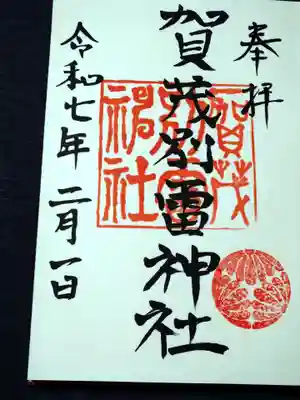 奉拝
賀茂別雷神社
令和七年二月一日
賀茂
別雷
神社